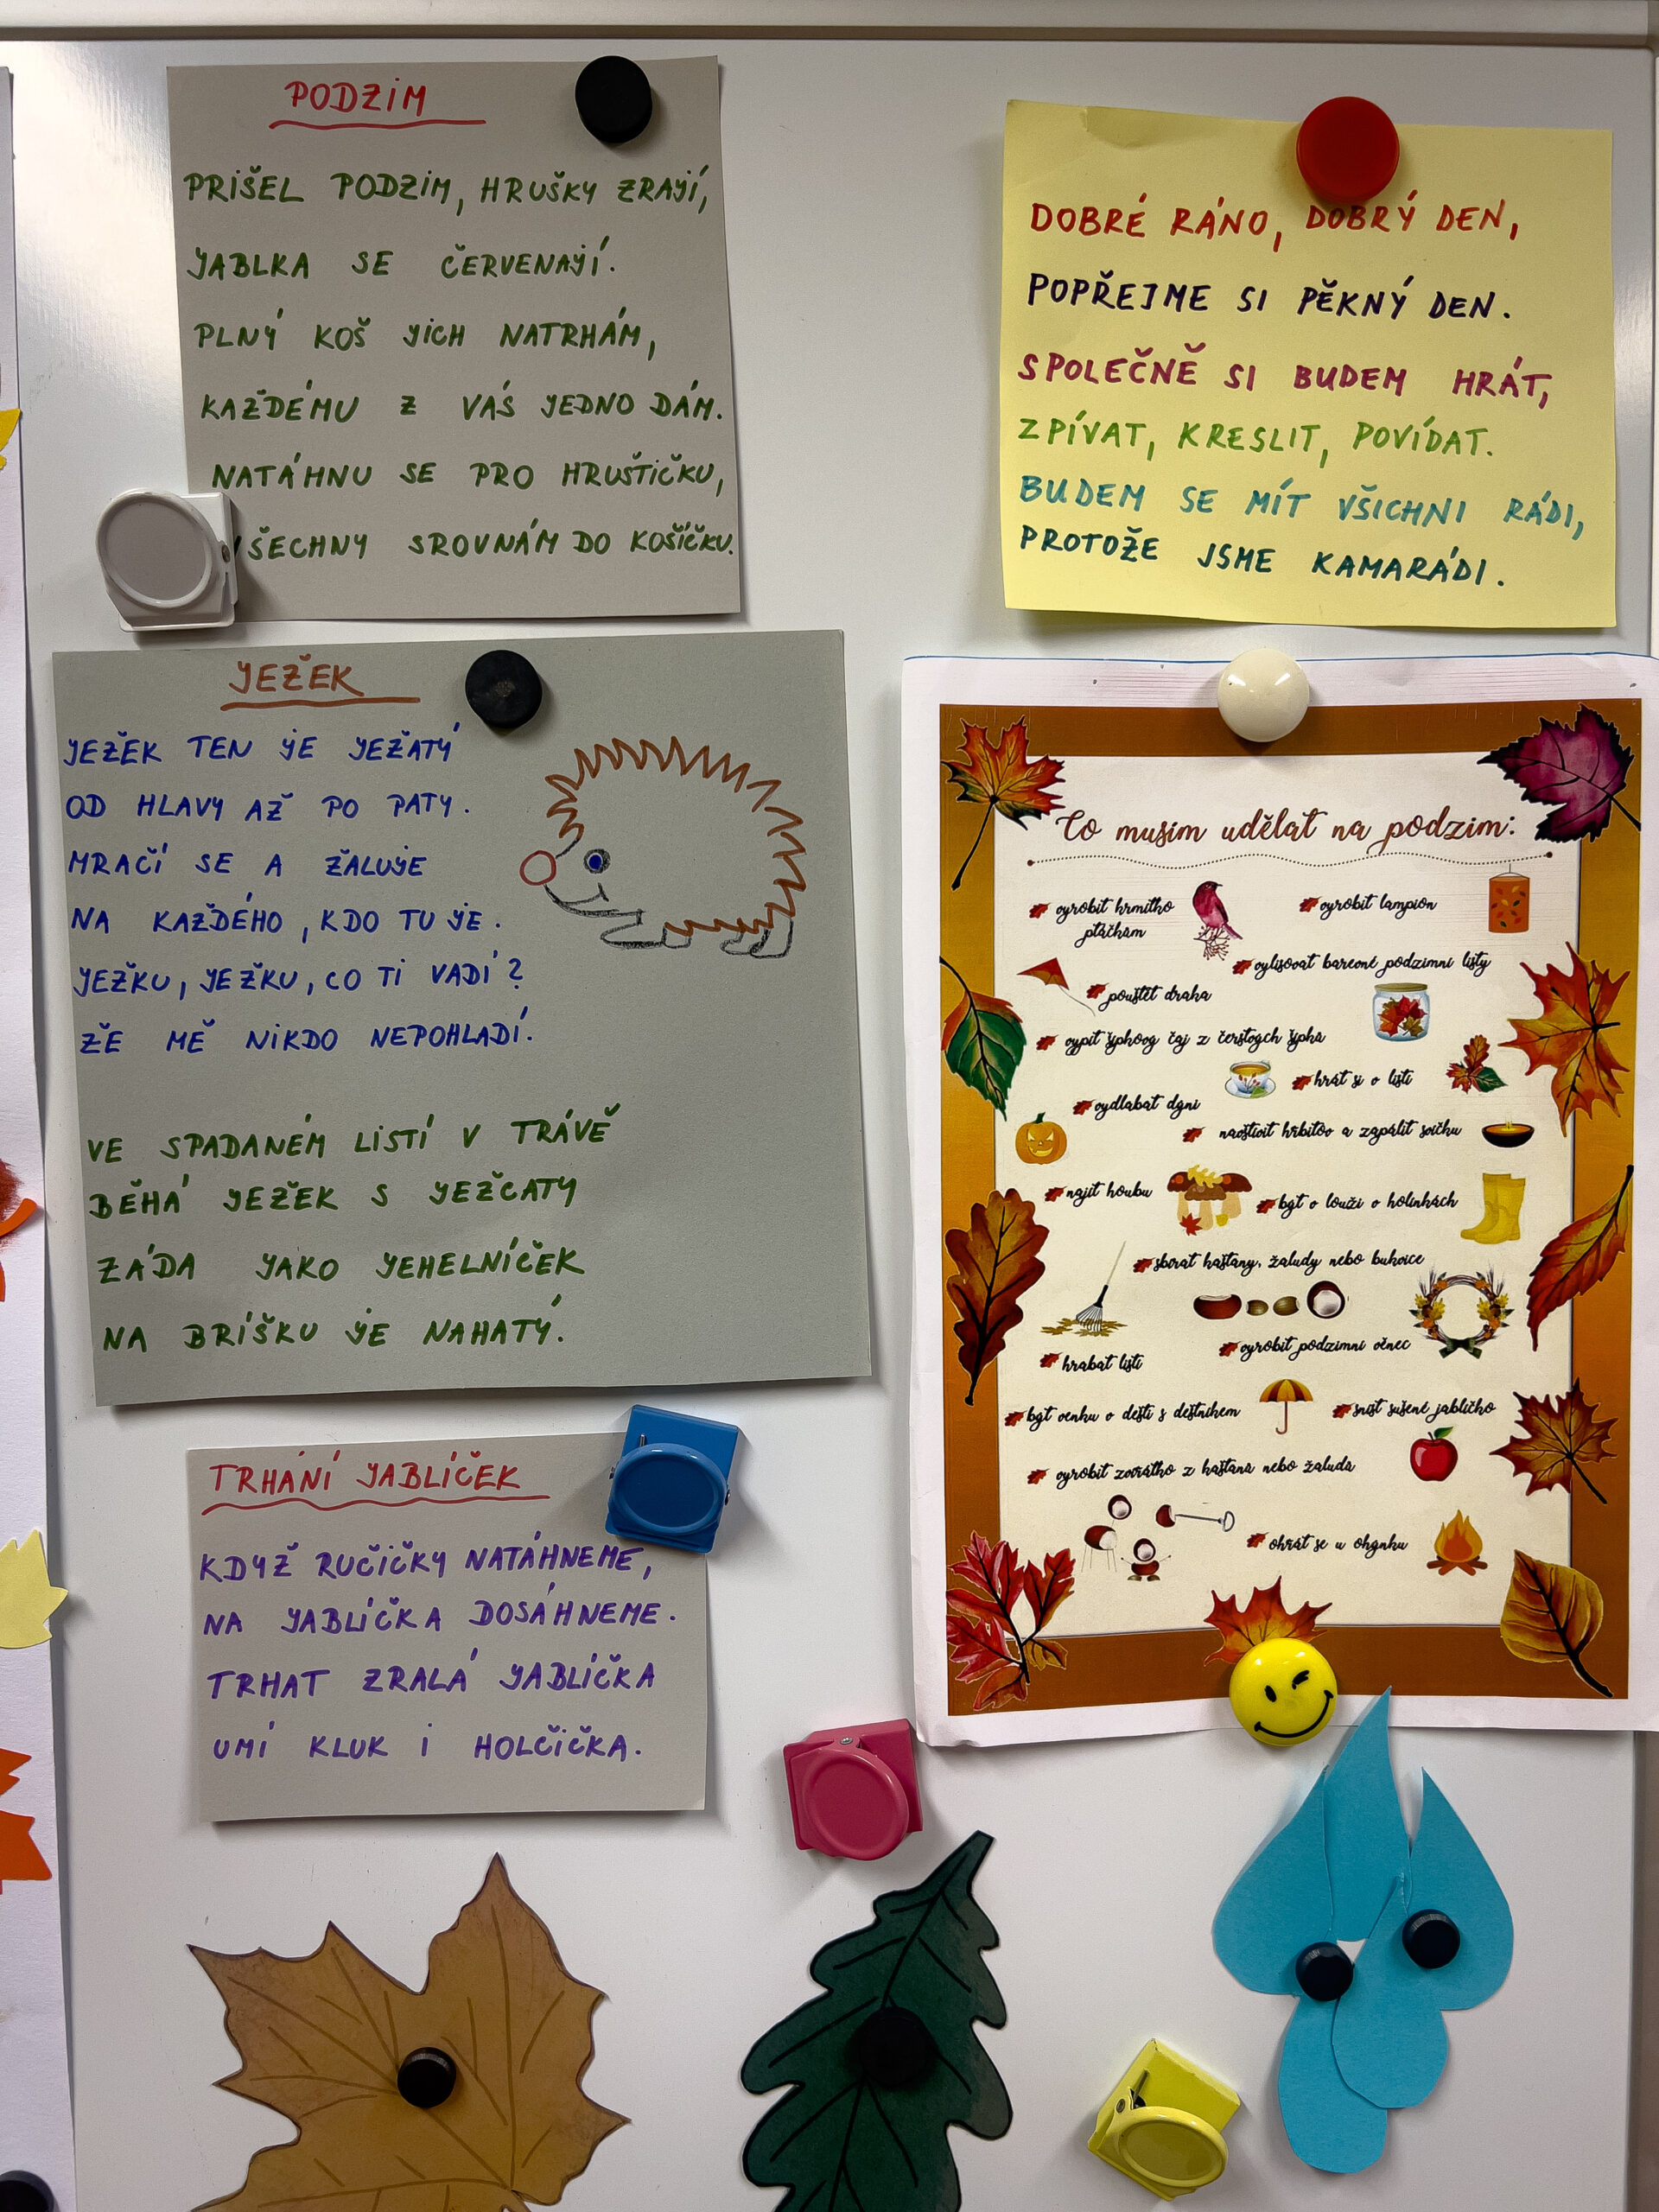 PODZIM
PRIŠEL PODZIM, HRUŠKY ZRAJÍ,
JABLKA SE ČERVENAJÍ.
PLNÝ KOŠ JICH NATRHÁM,
KAŽDÉMU Z VÁS JEDNO DÁM.
NATÁHNU SE PRO HRUŠTIČKU,
VŠECHNY SROVNÁM DO KOŠÍČKU.
JEŽEK
JEŽEK TEN JE JEŽATÝ
OD HLAVY AŽ PO PATY.
MRAČÍ SE A ŽALUJE
NA KAŽDÉHO, KDO TU JE.
JEŽKU, JEŽKU, CO TI VADÍ?
ŽE MĚ NIKDO NEPOHLADÍ.
VE SPADANÉM LISTÍ V TRÁVĚ
BĚHÁ JEŽEK S JEŽČATY
ZÁDA JAKO JEHELNÍČEK
NA BRÍŠKU JE NAHATÝ.
TRHÁNÍ JABLÍČEK
KDYŽ RUČIČKY NATÁHNEME,
NA JABLÍČKA DOSÁHNEME.
TRHAT ZRALÁ JABLÍČKA
UMÍ KLUK I HOLČIČKA.
DOBRÉ RÁNO, DOBRÝ DEN,
POPŘEJME SI PĚKNÝ DEN.
SPOLEČNĚ SI BUDEM HRÁT,
ZPÍVAT, KRESLIT, POVÍDAT.
BUDEM SE MÍT VŠICHNI RÁDI,
PROTOŽE JSME KAMARÁDI.
Co musím udělat na podzim:
vyrobit krmítko
ptáčkům
vyrobit lampion
vylisovat barevné podzimní listy
pouštět draka
vypít šípkový čaj z čerstvých šípků
hrát si v listí
vydlabat dýni
navštívit hřbitov a zapálit svíčku
najít houbu
být v louži v holínkách
sbírat kaštany, žaludy nebo bukvice
hrabat listí
vyrobit podzimní věnec
být venku v dešti s deštníkem
sníst sušené jablíčko
vyrobit zvířátko z kaštanů nebo žaludů
ohřát se u ohýnku